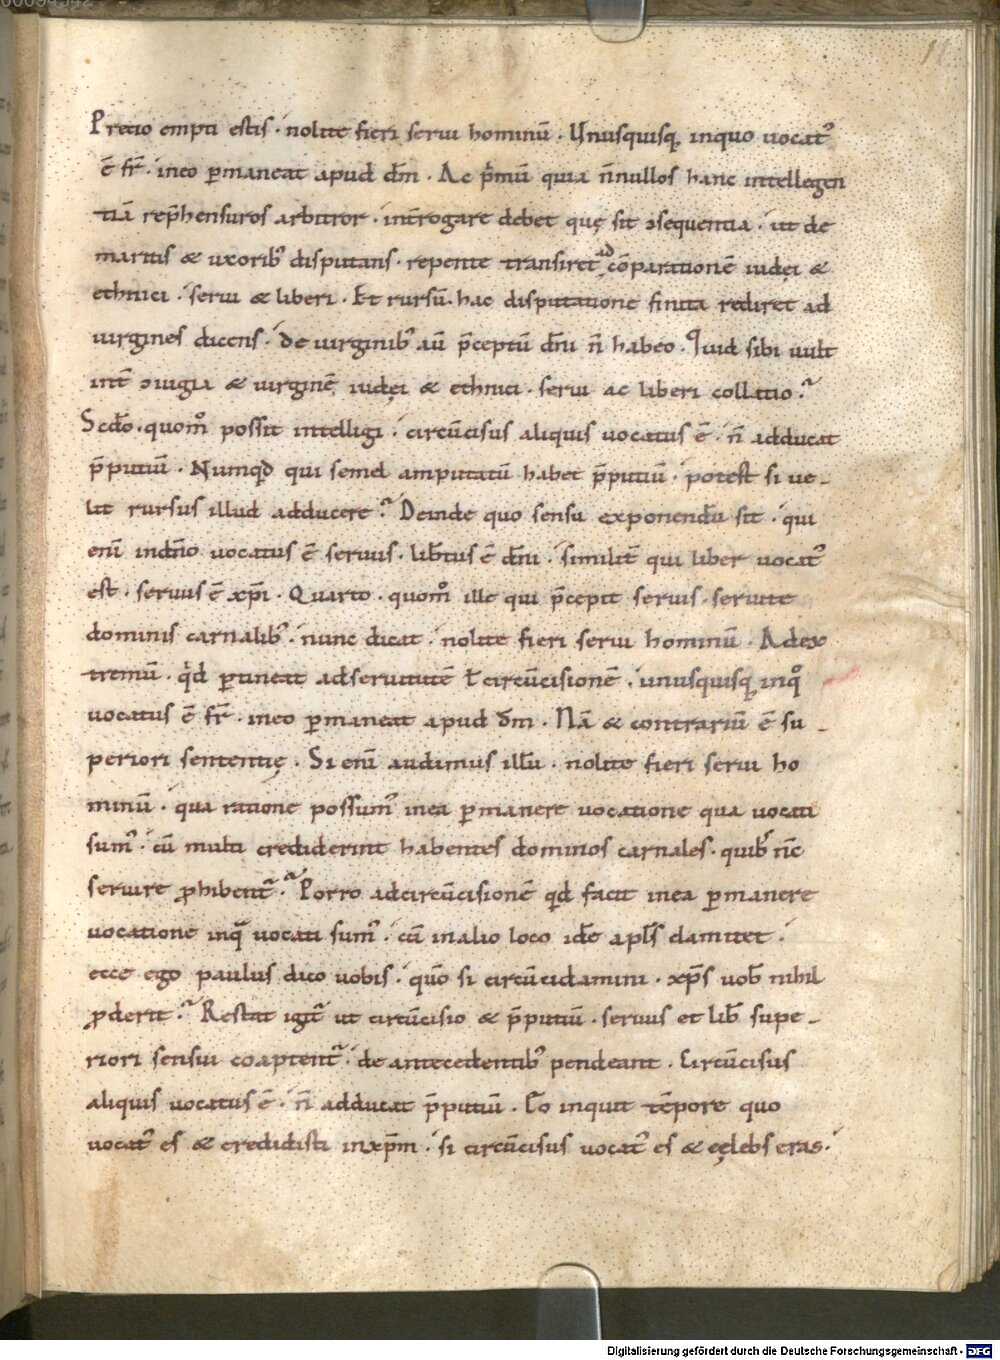 00094542
11
Precio empti estis · nolite fieri serui hominū · Unusquisq; inquo uocatꝰ
ē fr̄ · ineo p̄maneat apud dm̄ · Ac p̄mū quia n̄nullos hanc intellegen
tiā rep̄hensuros arbitror · int̄rogare debet quę sit ɔsequentia · ut de
maritis & uxoribꝰ disputans · repente transiret ad cōparationē iudęi &
ethnici · serui & liberi · Et rursū · hac disputatione finita rediret ad
uirgines dicens · de uirginibꝰ aū p̄ceptū dn̄i n̄ habeo · Quid sibi uult
int̄ ɔiugia & uirginē iudęi & ethnici · serui ac liberi collatio ·?
Scdo · quom̊ possit intelligi · circūcisus aliquis uocatus ē · n̄ adducat
p̄putiū · Numqd qui semel amputatū habet p̄putiū · potest si ue-
lit rursus illud adducere ? Deinde quo sensu exponendū sit · qui
enī indn̄o uocatus ē seruus · lib̄tus ē dn̄i · similit̄ qui liber uocatꝰ
est · seruus ē xp̄i · Quarto · quom̊ ille qui p̄cepit seruis · seruite
dominis carnalibꝰ · nunc dicat · nolite fieri serui hominū · Adex
tremū · qd ꝑtineat adseruitutē ł circūcisionē · unusquisq; inqͦ
uocatus ē fr̄ · ineo ꝑmaneat apud dm̄ · Nā & contrariū ē su-
periori sententię · Si enī audimus illū · nolite fieri serui ho
minū · qua ratione possumꝰ inea ꝑmanere uocatione qua uocati
sumꝰ · cū multi crediderint habentes dominos carnales · quibꝰ nc̄
seruire ꝓhibent̄ ·? Porro adcircūcisionē qd facit inea ꝑmanere
uocatione inqͣ uocati sumꝰ · cū inalio loco idē apl̄s clamitet ·
ecce ego paulus dico uobis · qūo si circūcidamini · xp̄s uob̄ nihil
ꝓderit ·? Restat igit̄ ut circūcisio & p̄putiū · seruus et lib̄ supe-
riori sensui coaptent̄ · de antecedentibꝰ pendeant · Circūcisus
aliquis uocatus ē · n̄ adducat p̄putiū · Eo inquit tēpore quo
uocatꝰ es & credidisti inxp̄m · si circūcisus uocatꝰ es & cęlebs eras ·
Digitalisierung gefördert durch die Deutsche Forschungsgemeinschaft - DFG